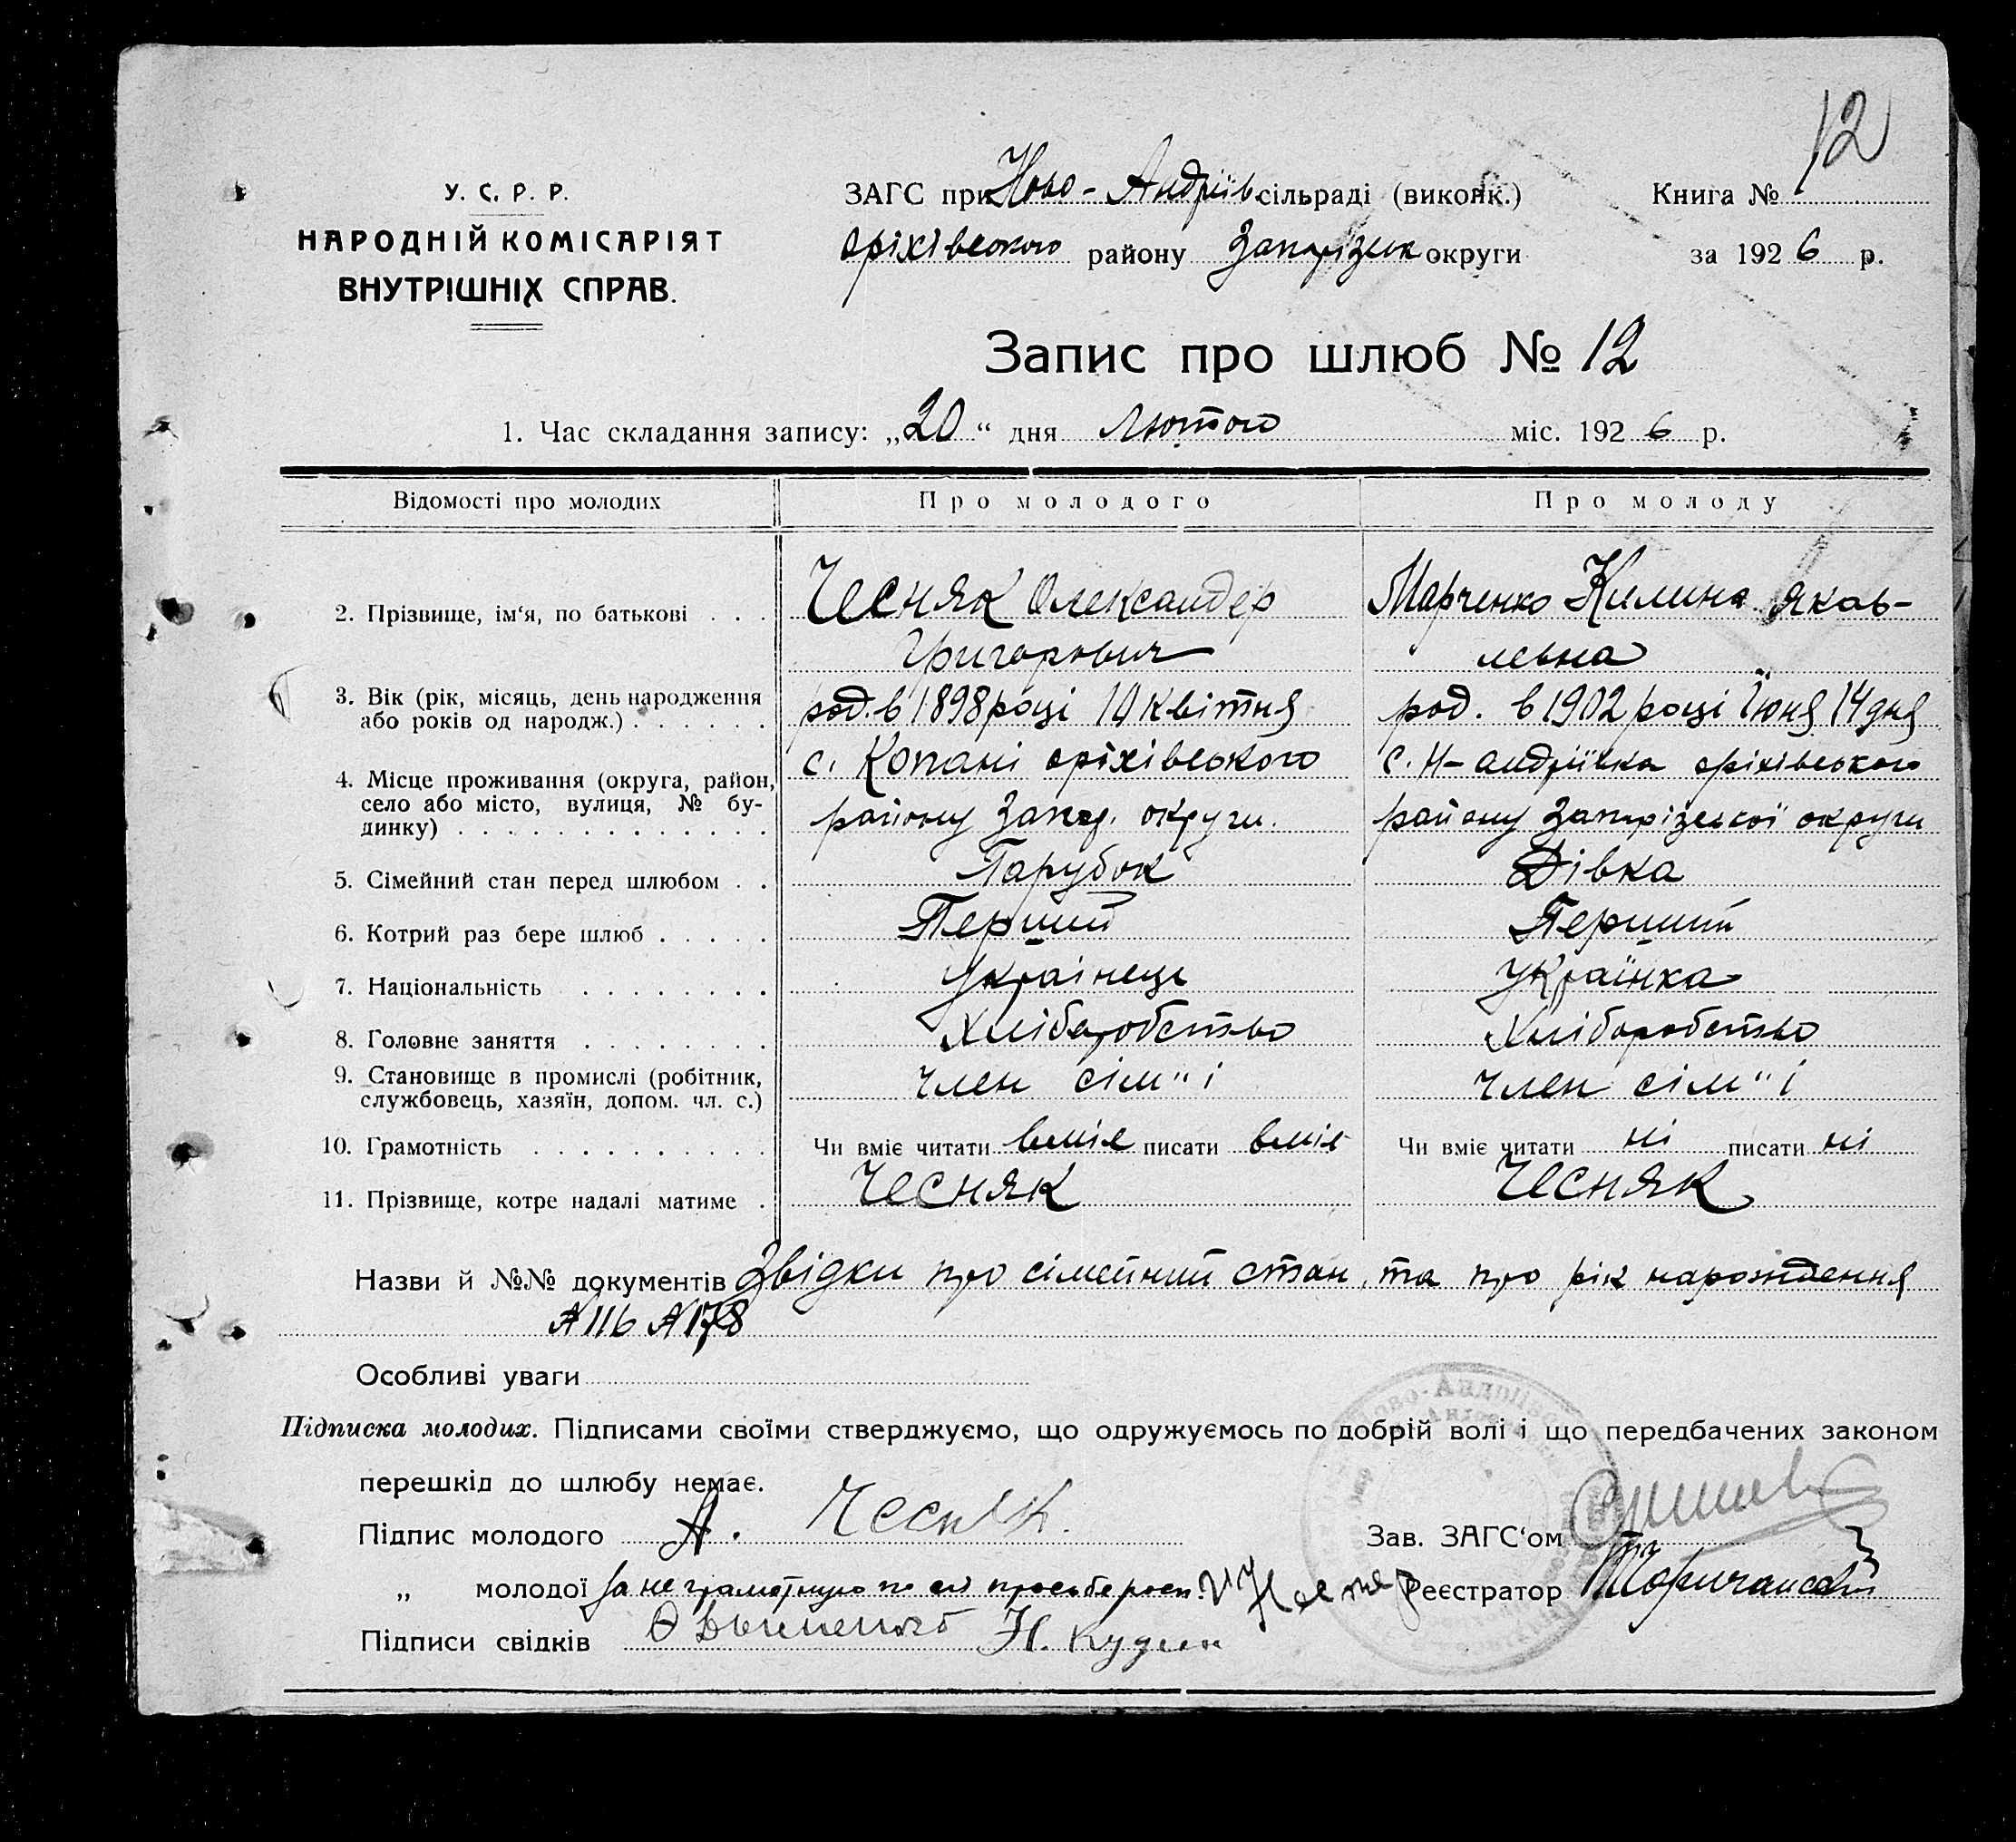 12
У. С. Р. Р.
НАРОДНІЙ КОМІСАРІЯТ
ВНУТРІШНІХ СПРАВ.
ЗАГС при Ново-Андріїв. сільраді (виконк.)
Оріхівського району Запорізьк округи
Книга №
за 1926 р.
Запис про шлюб № 12
1. Час складання запису: „20“ дня Лютого міс. 1926 р.
Відомості про молодих Про молодого Про молоду
2. Прізвище, ім‘я, по батькові . . . Чесняк Олександер Марченко Килина Яковь-
Григорович левна
3. Вік (рік, місяць, день народження род. в 1898 році 10 квітня род. в 1902 році Іюня 14 дня
або років од народж.) . . . . . .
с. Копані оріхівського с. Н-андріївка оріхівського
4. Місце проживання (округа, район,
село або місто, вулиця, № бу- району Запор. округи. району Запорізької округи
динку) . . . . . . . . . . . . .
5. Сімейний стан перед шлюбом . . Парубок Дівка
6. Котрий раз бере шлюб . . . . . Перший Перший
7. Національність . . . . . . . . Українець Українка
8. Головне заняття . . . . . . . . Хліборобство Хліборобство
9. Становище в промислі (робітник, член сім"і член сім"і
службовець, хазяїн, допом. чл. с.)
10. Грамотність . . . . . . . . . . Чи вміє читати вміє писати вміє Чи вміє читати ні писати ні
11. Прізвище, котре надалі матиме . Чесняк Чесняк
Назви й №№ документів Звідки про сімейний стан, та про рік нарождення
№116 №178
Особливі уваги
Підписка молодих. Підписами своїми стверджуємо, що одружуємось по добрій волі і що передбачених законом
перешкід до шлюбу немає.
Підпис молодого А. Чесняк.
Зав. ЗАГС‘ом
„ молодої За не грамотную по ей просьбе росп.
Реєстратор
Підписи свідків Н. Кудин